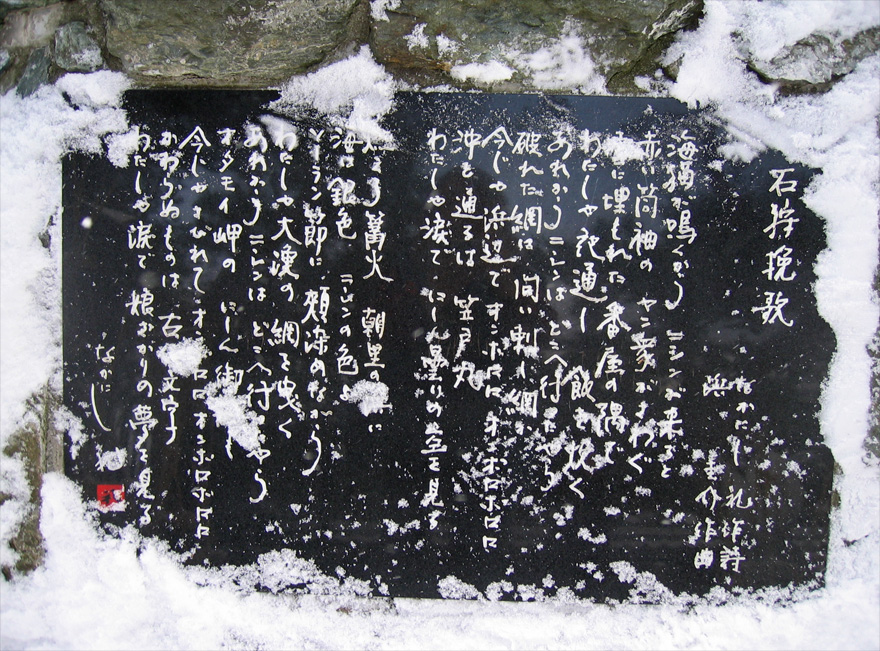 石狩挽歌
なかにし礼作詩
浜 圭介作曲
海猫が鳴くから ニシンが来ると
赤い筒袖の ヤン衆がさわぐ
雪に埋もれた 番屋の隅で
わたしゃ夜通し 飯を炊く
あれからニシンはどこへ行ったやら
破れた網は 問い刺し網か
今じゃ浜辺で オンボロロ オンボロボロロ
沖を通るは 笠戸丸
わたしゃ涙で にしん曇りの空を見る
篝火 朝里の に
海は銀色 ニシンの色よ
ソーラン節に 頬染めながら
わたしゃ大漁の 網を曳く
あれからニシンは どこへ行ったやら
オタモイ岬の にしん御
今じゃさびれて オンボロロ オンボロボロロ
かわらぬものは 古 文字
わたしゃ涙で 娘ざかりの夢を見る
なかにし 礼